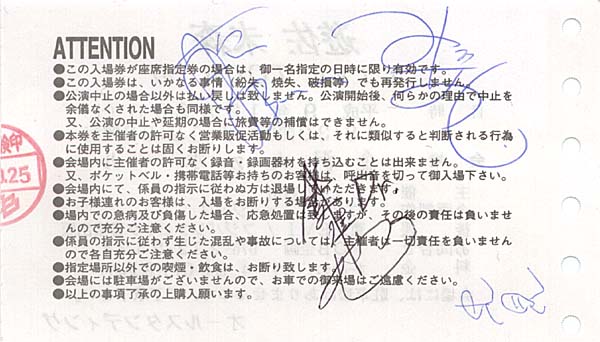 ATTENTION
●この入場券が座席指定券の場合は、御一名指定の日時に限り有効です。
●この入場券は、いかなる事情(紛失、焼失、破損等)でも再発行しません。
●公演中止の場合以外は払い戻しは致しません。公演開始後、何らかの理由で中止を
余儀なくされた場合も同様です。
又、公演の中止や延期の場合に旅費等の補償はできません。
●本券を主催者の許可なく営業販促活動もしくは、それに類似すると判断される行為
に使用することは固くお断りします。
●会場内に主催者の許可なく録音・録画器材を持ち込むことは出来ません。
又、ポケットベル・携帯電話等お持ちのお客様は、呼出音を切って御入場下さい。
●会場内にて、係員の指示に従わぬ方は退場していただきます。
●お子様連れのお客様は、入場をお断りする場合があります。
●場内での急病及び負傷した場合、応急処置は致しますが、その後の責任は負いませ
んので充分ご注意ください。
●係員の指示に従わず生じた混乱や事故については、主催者は一切責任を負いません
ので各自充分ご注意ください。
●指定場所以外での喫煙・飲食は、お断り致します。
●会場には駐車場がございませんので、お車での御来場はご遠慮ください。
●以上の事項了承の上購入願います。
印
.25